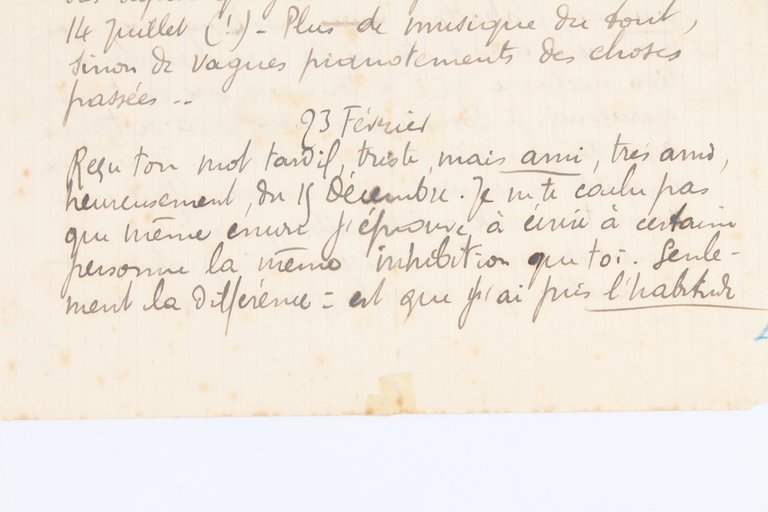 14 Juillet (!) - Plus de musique du tout,
sinon de vagues pianotements des choses
passées --
23 Février
Reçu ton mot tardif, triste, mais ami, très ami,
heureusement, du 15 Décembre. Je ne te coulu pas
que même envers j'éprouve, à écrire à certaine
personne la même inhibition que toi. Seule-
ment la différence = est que j'ai pris l'habitude